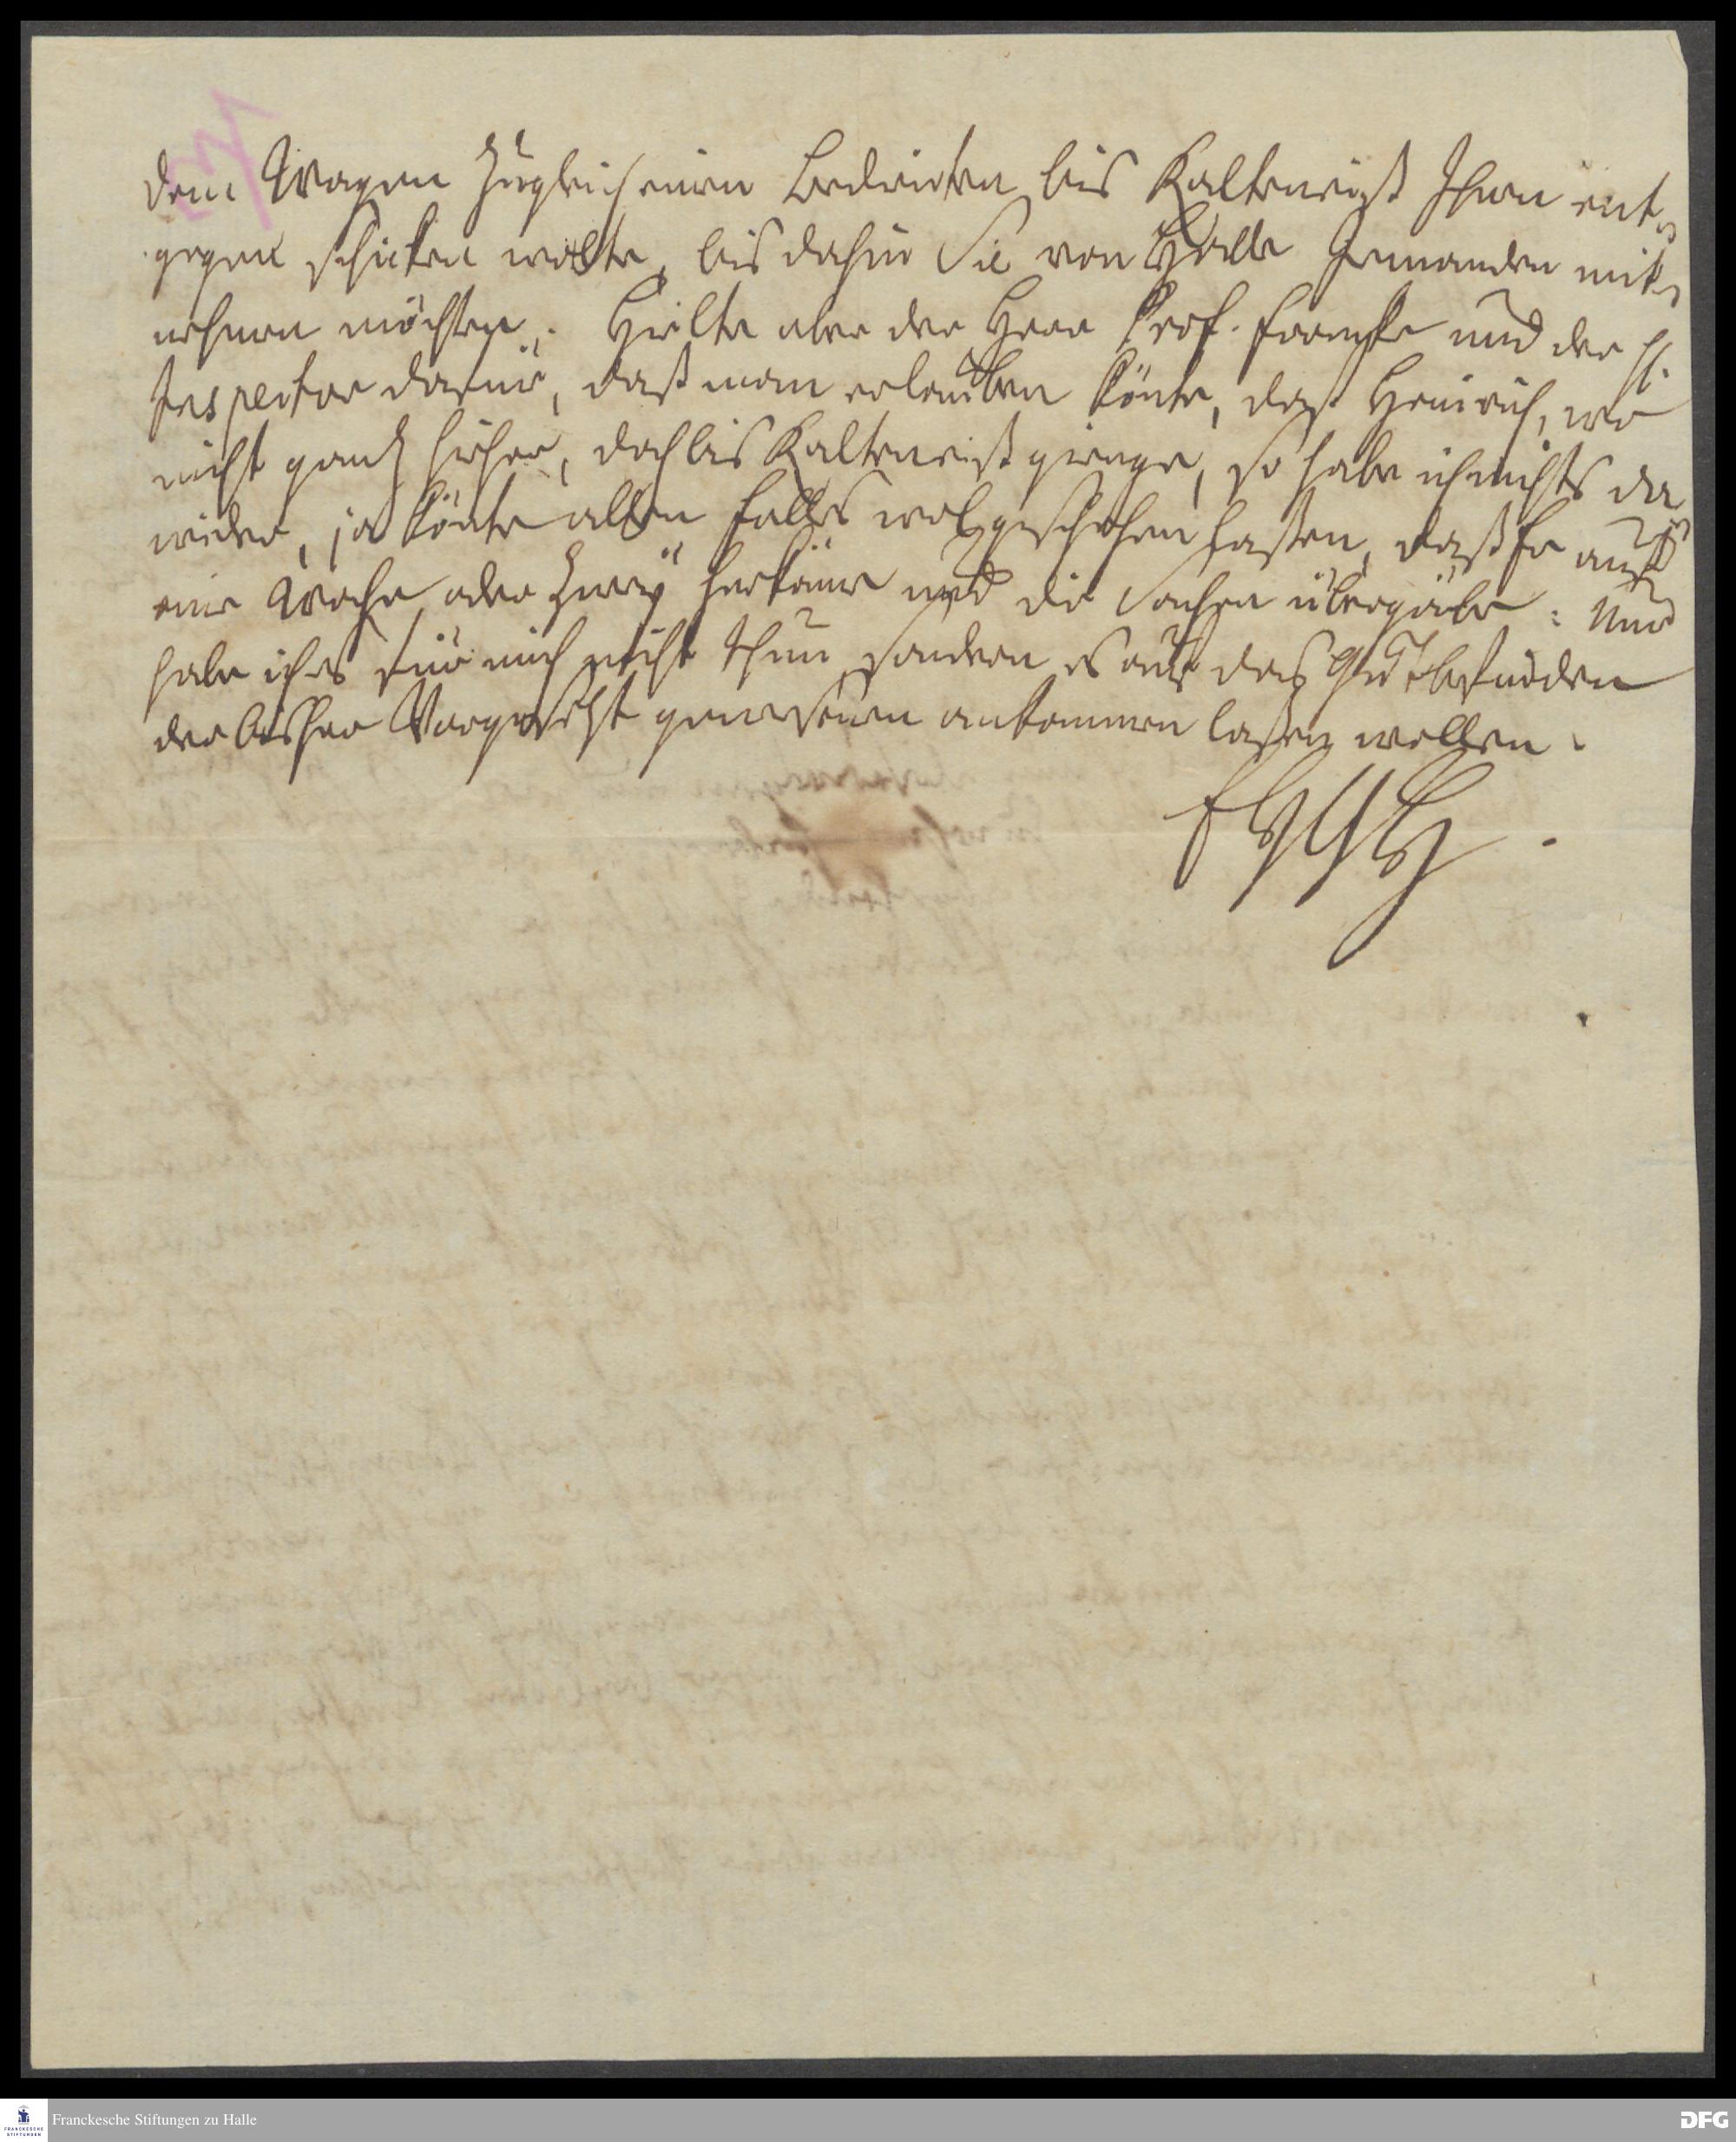 dem Wagen zugleich einen Bedienten bis Kalteneiß Ihnen ent-
gegen schicken wolte, bis dahin Sie von Halle Jemanden mit-
nehmen möchten. Hielte aber der Herr Prof. Francke und der H.
Inspector dafür, daß man erlauben könte, daß Heinrich, wo
nicht gantz hieher, doch bis Kalteneiß gienge, so habe ich nichts da
wider, ja könte allen falls wol geschehen laßen, daß Er auf
eine Woche oder zwey herkäme und die Sachen übergäbe: Nur
habe ichs für mich nicht thun, sondern es auf das Gutbefinden
der bisher Vorgesetzt gewesenen ankommen laßen wollen.
Franckesche Stiftungen zu Halle
FRANCKESCHE
STIFTUNGEN
DFG